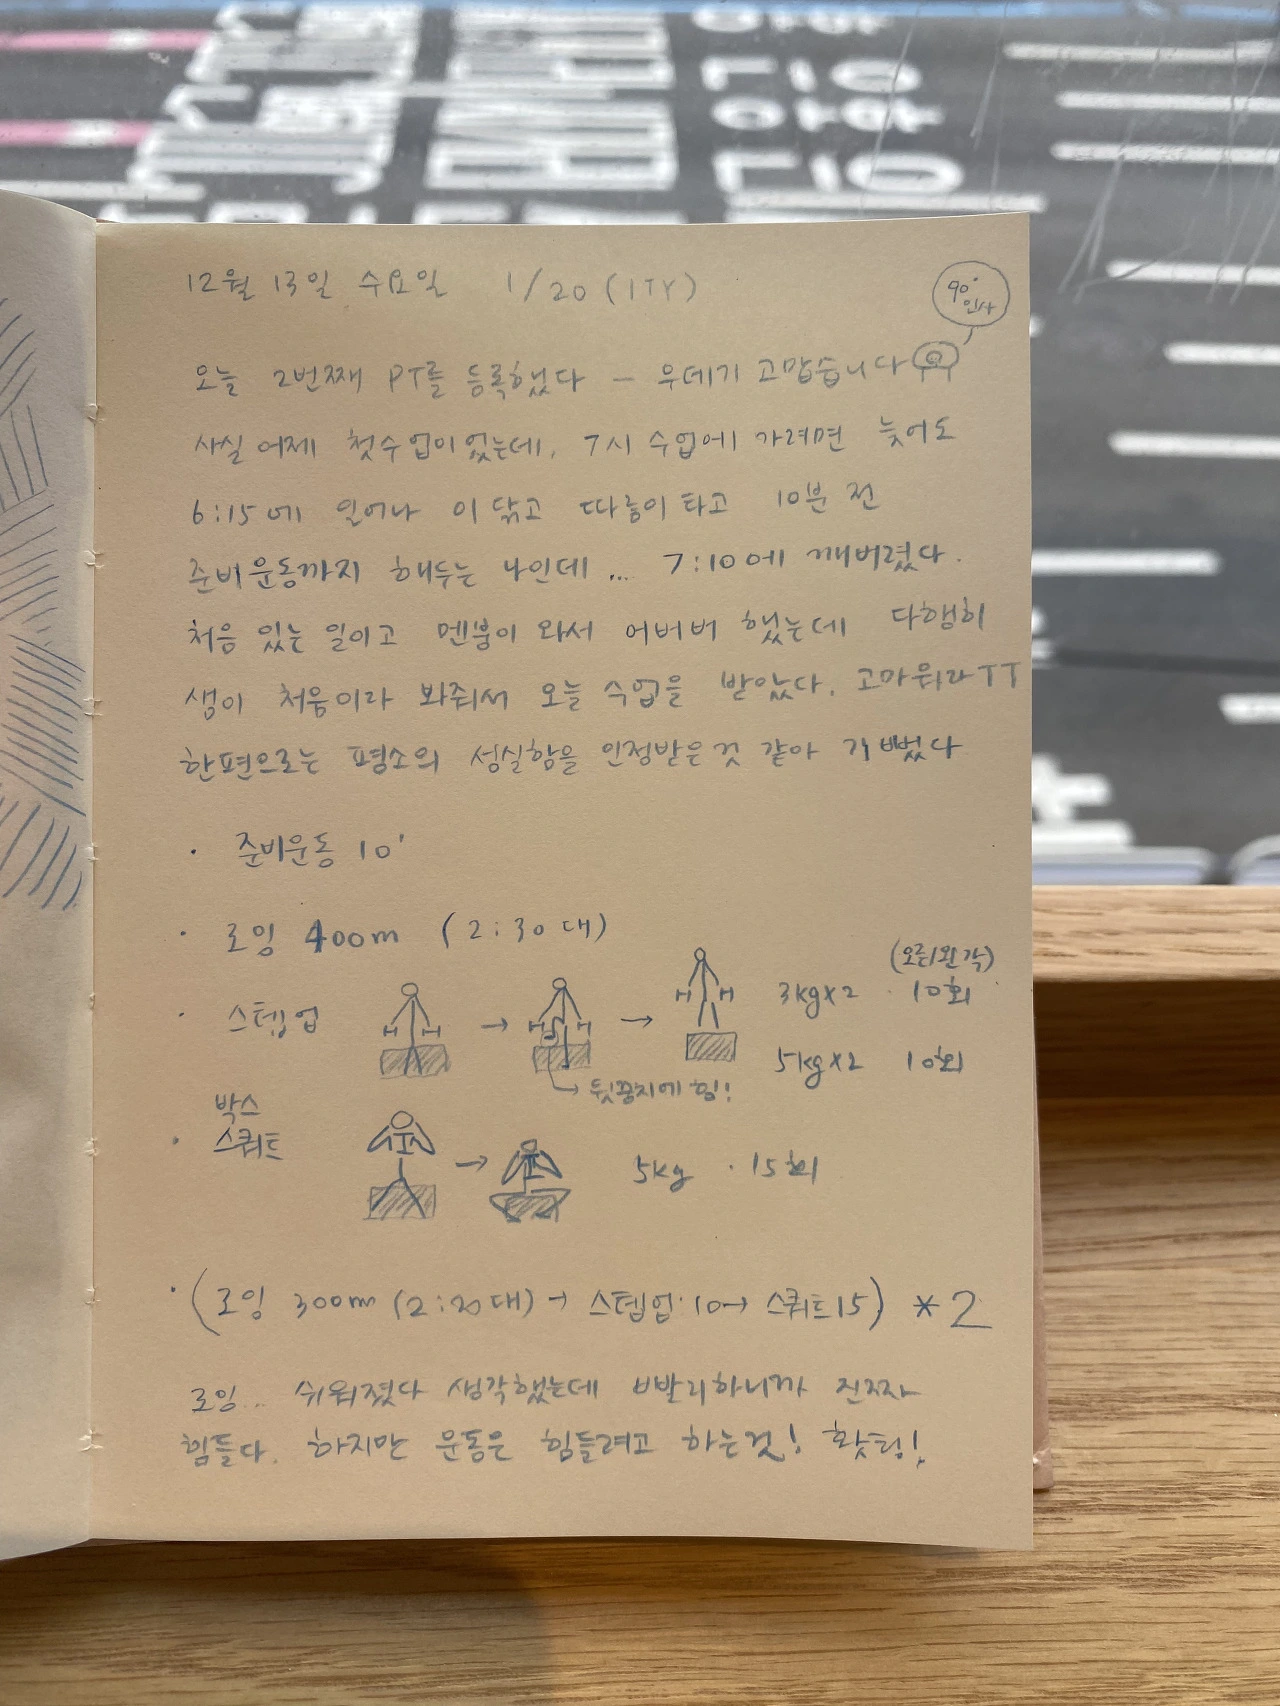 12월 13일 수요일 1/20 (1TY)
90° 인사
오늘 2번째 PT를 등록했다 - 우데기 고맙습니다
사실 어제 첫수업이었는데, 7시 수업에 가려면 늦어도
6:15에 일어나 이 닦고 따릉이 타고 10분 전
준비운동까지 해두는 나인데 ... 7:10에 깨버렸다.
처음 있는 일이고 멘붕이 와서 어버버 했는데 다행히
생이 처음이라 봐줘서 오늘 수업을 받았다. 고마워라 TT
한편으로는 평소의 성실함을 인정받은것 같아 기뻤다
· 준비운동 10'
· 로잉 400m (2:30대)
(오른/왼 각)
· 스텝업 → → 3kg×2 · 10회
5kg×2 10회
뒷꿈치에 힘!
박스
· 스쿼트 → 5kg · 15회
· (로잉 300m (2:20대) → 스텝업·10 → 스쿼트15) * 2
로잉.. 쉬워졌다 생각했는데 빨리하니까 진짜
힘들다. 하지만 운동은 힘들려고 하는것! 홧팅!